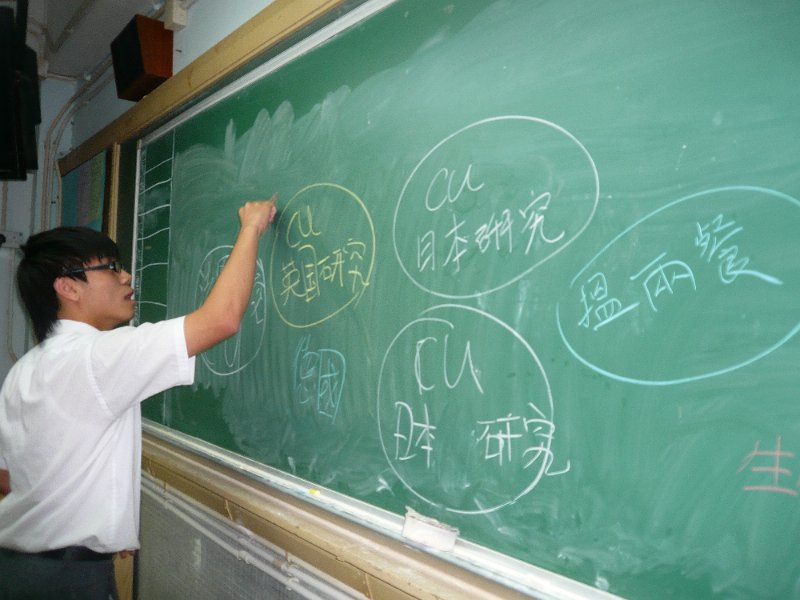 CU
英国研究
CU
日本研究
CU
日本 研究
搵兩餐
德國
生